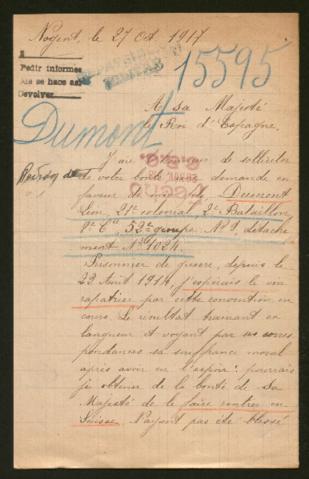 Nogent, le 27 Oct 1917
15595
Pedir informes
Devolver
A sa Majesté
le Roi d'Espagne,
Dumont
J'ai de solliciter
de votre bonté une demande en
faveur de mon fils Dumont
Léon, 21e colonial, 2e Bataillon,
52e groupe, Nº 9, Détache
ment Nº 1024.
Prisonnier de guerre, depuis le
22 Août 1914, j'espérais le voir
rapatrier par cette convention en
cours. Le résultat trainant en
longueur et voyant par ses corres
pondances sa souffrance moral
après avoir eu l'espoir: pourrais
je obtenir de la bonté de Sa
Majesté de le faire rentrer en
Suisse. N'ayant pas été blessé